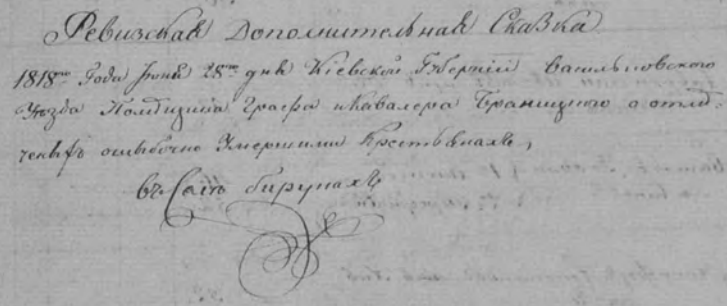 Ревизская Дополнительная Сказка
1818го Года Июня 28го дня Кіевской Губерніи Васильковского
Уезда Помещика Графа и Кавалера Браницкого о отме-
ченных ошибочно Умершими Крестьянахъ,
въ Селе Бирунахъ